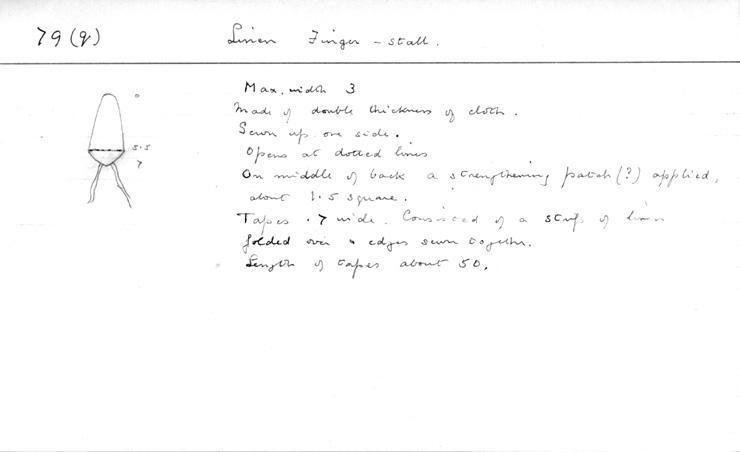 79(q)
Linen Finger-stall.
0
5.5
7
Max. width 3
Made of double thickness of cloth.
Sewn up one side.
Opens at dotted lines
On middle of back a strengthening patch (?) applied,
about 1.5 square.
Tapes .7 wide. Consisted of a strip of linen
folded over & edges sewn together.
Length of tapes about 50.